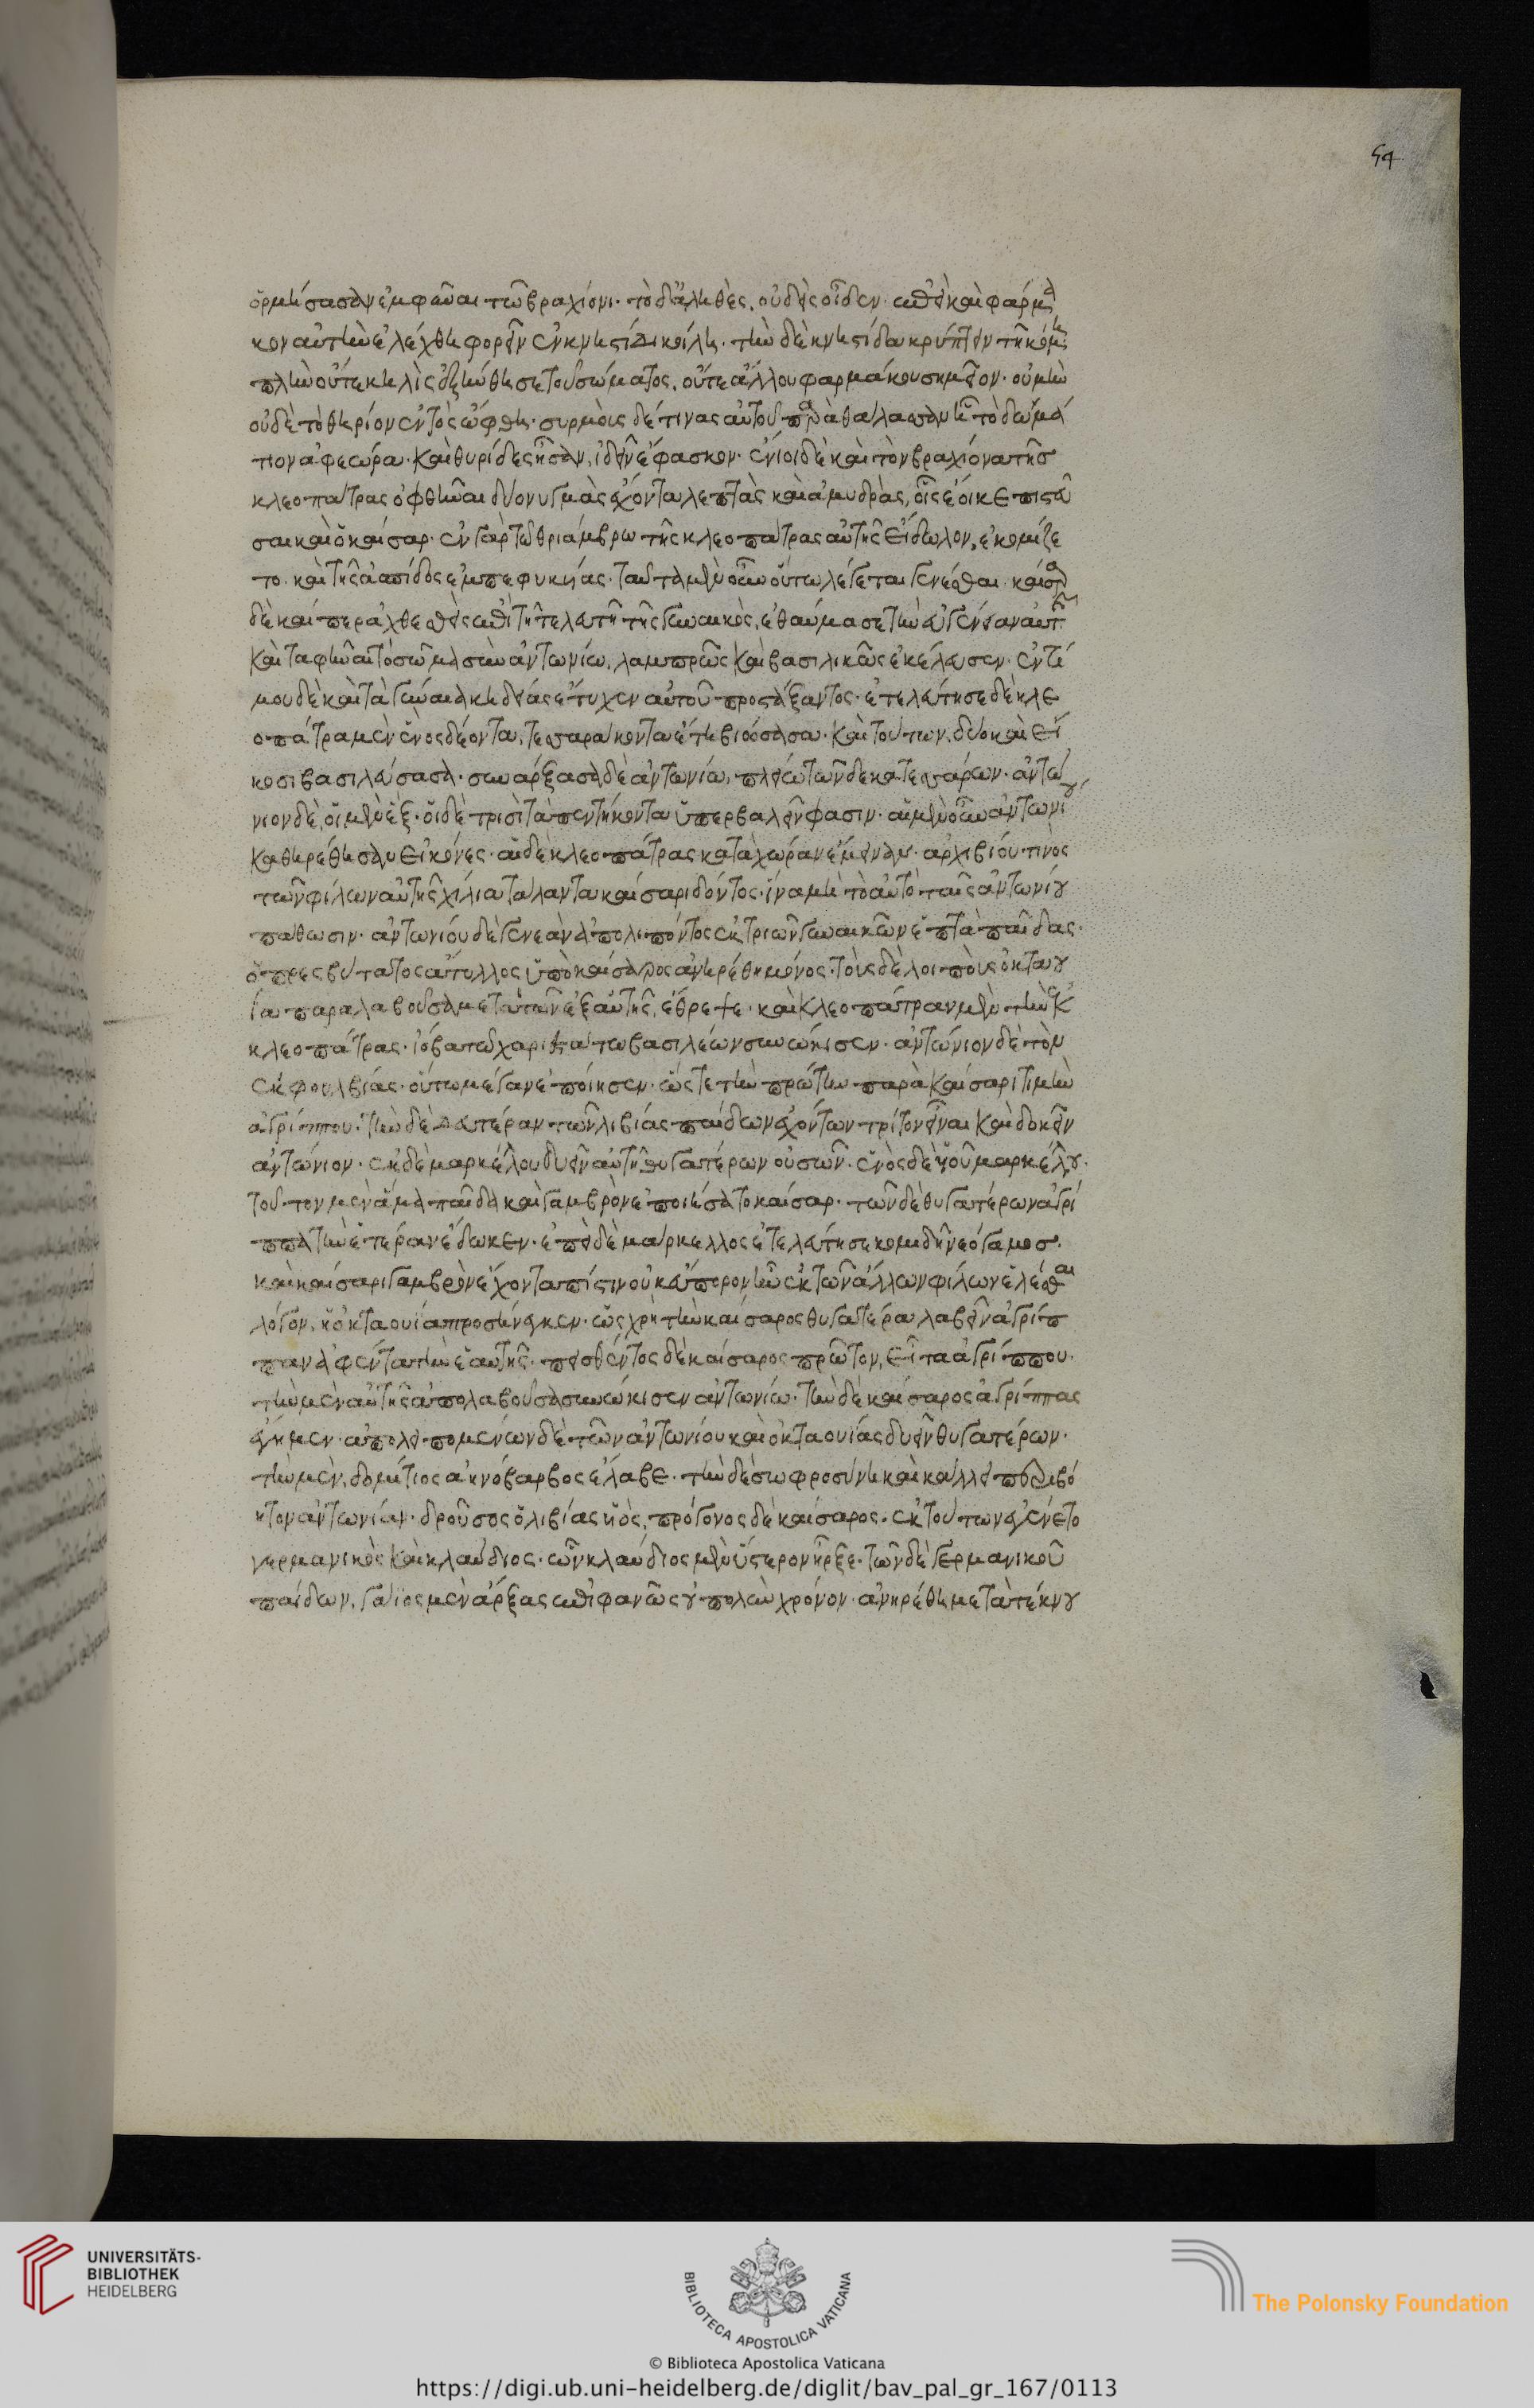 54
ὁρμήσασαν ἐμφῦναι τῶ βραχίονι· τὸ δ' ἀληθὲς, οὐδεὶς οἶδεν· ἐπεὶ καὶ φάρμα
κον αὐτὴν ἐλέχθη φορεῖν ἐν κνηστίδι κοίλη· τὴν δὲ κνηστίδα κρύπτειν τῆ κόμη
πλὴν οὔτε κηλὶς ἐξήνθησε τοῦ σώματος, οὔτε ἄλλου φαρμάκου σημεῖον· οὐ μὴν
οὐδὲ τὸ θηρίον ἐντὸς ὤφθη· συρμοὺς δέ τινας αὐτοῦ παρὰ θάλασσαν ᾗ τὸ δωμά
τιον ἀφεώρα· καὶ θυρίδες ἦσαν, ἰδεῖν ἔφασκον· ἔνιοι δὲ καὶ τὸν βραχίονα τῆσ
κλεοπάτρας ὀφθῆναι δύο νυγμὰς ἔχοντα λεπτὰς καὶ ἀμυδρὰς, οἷς ἔοικε πιστεῦ
σαι καὶ ὁ καίσαρ· ἐν γὰρ τῶ θριάμβω τῆς κλεοπάτρας αὐτῆς εἴδωλον, ἐκομίζε
το· καὶ τῆς ἀσπίδος ἐμπεφυκυίας· ταῦτα μὲν οὖν οὕτω λέγεται γενέσθαι· καῖσαρ
δὲ καίπερ ἀχθεσθεὶς ἐπὶ τῆ τελευτῆ τῆς γυναικὸς, ἐθαύμασε τὴν εὐγένειαν αὐτῆς
καὶ ταφῆναι τὸ σῶμα σὺν ἀντωνίω, λαμπρῶς καὶ βασιλικῶς ἐκέλευσεν· ἐντί
μου δὲ καὶ τὰ γύναια κηδείας ἔτυχεν αὐτοῦ προστάξαντος· ἐτελεύτησε δὲ κλε
οπάτρα μὲν ἑνὸς δέοντα, τεσσαράκοντα ἔτη βιώσασα· καὶ τούτων, δύο καὶ εἴ
κοσι βασιλεύσασα· συνάρξασα δὲ ἀντωνίω, πλείω τῶν δεκατεσσάρων· ἀντώ
νιον δὲ, οἱ μὲν ἓξ· οἱ δὲ τρισὶ τὰ πεντήκοντα ὑπερβαλεῖν φασιν· αἱ μὲν οὖν ἀντωνίου
καθηρέθησαν εἰκόνες· αἱ δὲ κλεοπάτρας κατὰ χώραν ἔμειναν· ἀρχιβίου τινὸς
τῶν φίλων αὐτῆς χίλια τάλαντα καίσαρι δόντος· ἵνα μὴ τὸ αὐτὸ ταῖς ἀντωνίου
πάθωσιν· ἀντωνίου δὲ γενεὰν ἀπολιπόντος ἐκ τριῶν γυναικῶν ἑπτὰ παῖδας·
ὁ πρεσβύτατος ἄτυλλος ὑπὸ καίσαρος ἀνηρέθη μόνος· τοὺς δὲ λοιποὺς ὀκταου
ία παραλαβοῦσα μετὰ τῶν ἐξ αὑτῆς, ἔθρεψε· καὶ κλεοπάτραν μὲν τὴν ἐκ
κλεοπάτρας· ἰόβα τῶ χαριεστάτω βασιλέων συνώκισεν· ἀντώνιον δὲ τὸν
ἐκ φουλβίας· οὕτω μέγαν ἐποίησεν· ὥστε τὴν πρώτην παρὰ καίσαρι τιμὴν
ἀγρίππου· τὴν δὲ δευτέραν τῶν λιβίας παίδων ἐχόντων τρίτον εἶναι καὶ δοκεῖν
ἀντώνιον· ἐκ δὲ μαρκέλου δυεῖν αὐτῆ θυγατέρων οὐσῶν· ἑνὸς δὲ υἱοῦ μαρκέλλου·
τοῦτον μὲν ἅμα παῖδα καὶ γαμβρὸν ἐποιήσατο καῖσαρ· τῶν δὲ θυγατέρων ἀγρί
ππα τὴν ἑτέραν ἔδωκεν· ἐπεὶ δὲ μάρκελλος ἐτελεύτησε κομιδῆ νεόγαμοσ·
καὶ καίσαρι γαμβρὸν ἔχοντα πίστιν οὐκ εὔπορον ἦν ἐκ τῶν ἄλλων φίλων ἑλέσθαι
λόγον, ἡ ὀκταουία προσήνεγκεν· ὡς χρὴ τὴν καίσαρος θυγατέρα λαβεῖν ἀγρίπ
παν ἀφέντα τὴν ἑαυτῆς· πεισθέντος δὲ καίσαρος πρῶτον, εἶτα ἀγρίππου·
τὴν μὲν αὑτῆς ἀπολαβοῦσα συνώκισεν ἀντωνίω· τὴν δὲ καίσαρος ἀγρίππας
ἔγημεν· ἀπολειπομένων δὲ τῶν ἀντωνίου καὶ ὀκταουίας δυεῖν θυγατέρων·
τὴν μὲν, δομίτιος ἀηνόβαρβος ἔλαβε· τὴν δὲ σωφροσύνη καὶ κάλλει περιβό
ητον ἀντωνίαν· δροῦσος ὁ λιβίας υἱὸς, πρόγονος δὲ καίσαρος· ἐκ τούτων ἐγένετο
γερμανικὸς καὶ κλαύδιος· ὧν κλαύδιος μὲν ὕστερον ἦρξε· τῶν δὲ γερμανικοῦ
παίδων, γάϊος μὲν ἄρξας ἐπιφανῶς οὐ πολὺν χρόνον· ἀνηρέθη μετὰ τέκνου
UNIVERSITÄTS-
BIBLIOTHEK
HEIDELBERG
BIBLIOTECA APOSTOLICA VATICANA
The Polonsky Foundation
© Biblioteca Apostolica Vaticana
https://digi.ub.uni-heidelberg.de/diglit/bav_pal_gr_167/0113